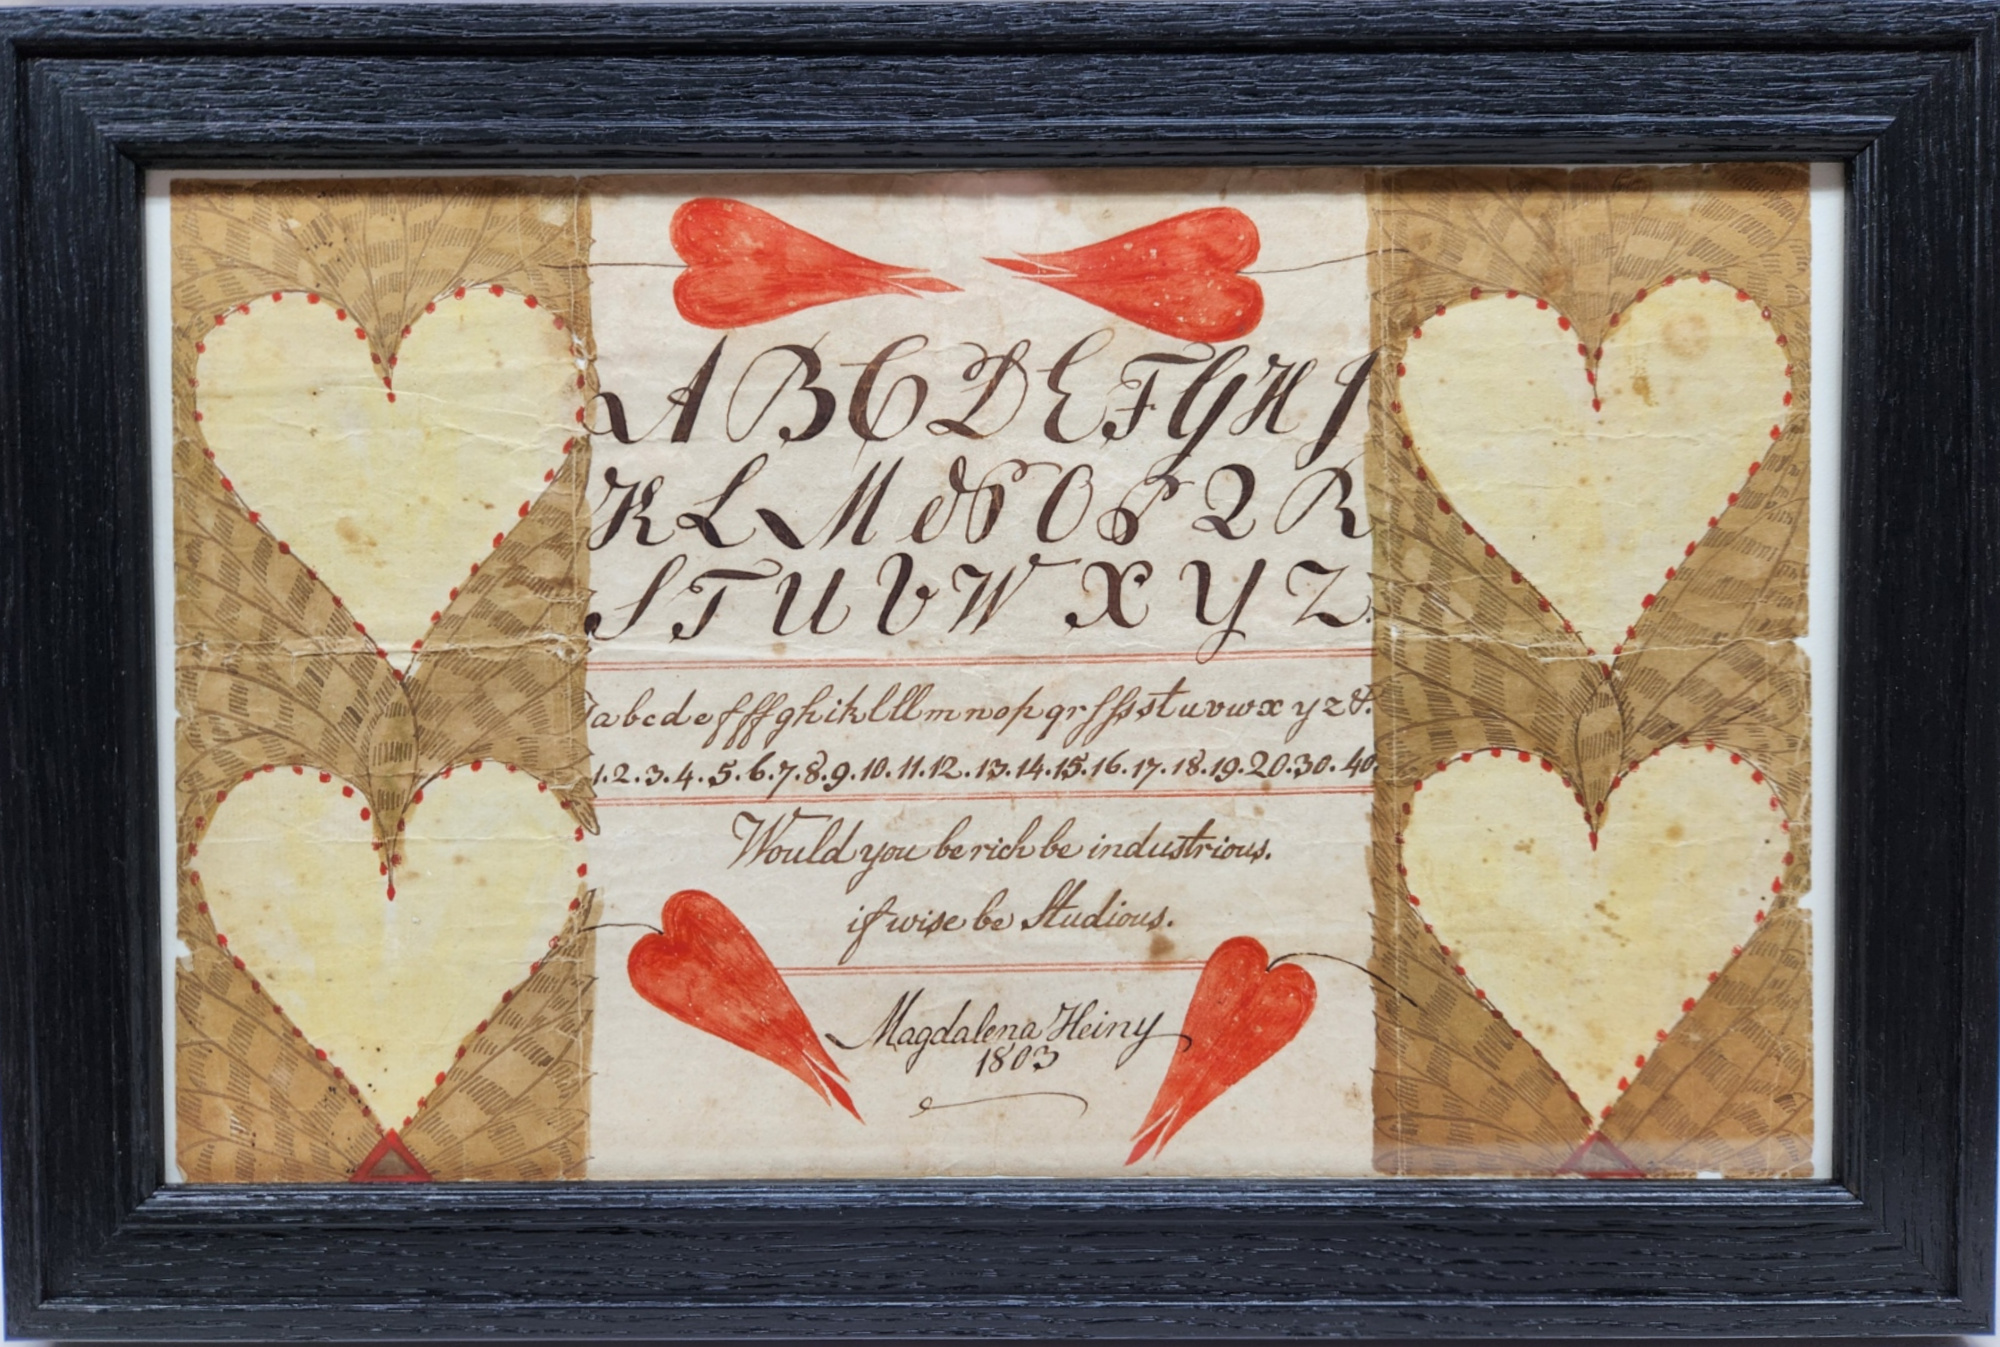 A B C D E F G H I
K L M N O P Q R
S T U V W X Y Z.
a b c d e f ff g h i k l ll m n o p q r ſ ſs s t u v w x y z &.
1. 2. 3. 4. 5. 6. 7. 8. 9. 10. 11. 12. 13. 14. 15. 16. 17. 18. 19. 20. 30. 40.
Would you be rich be industrious.
if wise be Studious.
Magdalena Heiny
1803